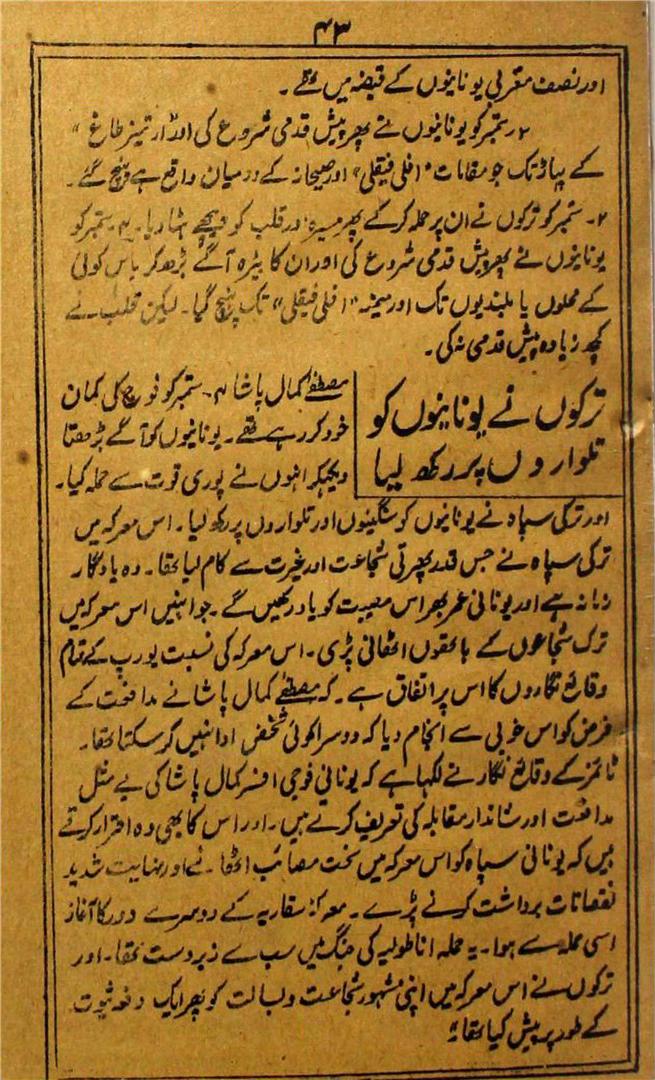 ۴۳
اور نصف مغربی یونانیوں کے قبضہ میں تھے۔
۲ ستمبر کو یونانیوں نے پھر پیش قدمی شروع کی اور
کے پہاڑ تک جو مقامات "افلی فیقلی" اور صیحانہ کے درمیان واقع ہے پہنچ گئے۔
۲۔ ستمبر کو ترکوں نے ان پر حملہ کر کے پھر میسرہ اور قلب کو پیچھے ہٹا دیا۔ ۴۔ ستمبر کو
یونانیوں نے پھر پیش قدمی شروع کی اور ان کا بیڑہ آگے بڑھ کر باس کوئی
کے محلوں یا بلندیوں تک اور میمنہ "افلی فیقلی" تک پہنچ گیا۔ لیکن قلب نے
کچھ زیادہ پیش قدمی نہ کی۔
ترکوں نے یونانیوں کو
تلواروں پر رکھ لیا
مصطفےٰ کمال پاشا ۴۔ ستمبر کو فوج کی کمان
خود کر رہے تھے۔ یونانیوں کو آگے بڑھتا
دیکھکر انہوں نے پوری قوت سے حملہ کیا۔
اور ترکی سپاہ نے یونانیوں کو سنگینوں اور تلواروں پر رکھ لیا۔ اس معرکہ میں
ترکی سپاہ نے جس قدر پھرتی شجاعت اور غیرت سے کام لیا تھا۔ وہ یادگار
زمانہ ہے اور یونانی عمر بھر اس مصیبت کو یاد رکھیں گے۔ جو انہیں اس معرکہ میں
ترک شجاعوں کے ہاتھوں اٹھانی پڑی۔ اس معرکہ کی نسبت یورپ کے تمام
وقائع نگاروں کا اس پر اتفاق ہے۔ کہ مصطفےٰ کمال پاشا نے مدافعت کے
فرض کو اس خوبی سے انجام دیا کہ دوسرا کوئی شخص ادا نہیں کر سکتا تھا۔
ٹائمز کے وقائع نگار نے لکھا ہے کہ یونانی فوجی افسر کمال پاشا کی بے مثل
مدافعت اور شاندار مقابلہ کی تعریف کرتے ہیں۔ اور اس کا بھی وہ اقرار کرتے
ہیں کہ یونانی سپاہ کو اس معرکہ میں سخت مصائب اٹھانے اور نہایت شدید
نقصانات برداشت کرنے پڑے۔ معرکۂ سقاریہ کے دوسرے دور کا آغاز
اسی حملہ سے ہوا۔ یہ حملہ اناطولیہ کی جنگ میں سب سے زبردست تھا۔ اور
ترکوں نے اس معرکہ میں اپنی مشہور شجاعت و بسالت کو پھر ایک دفعہ ثبوت
کے طور پر پیش کیا تھا۔